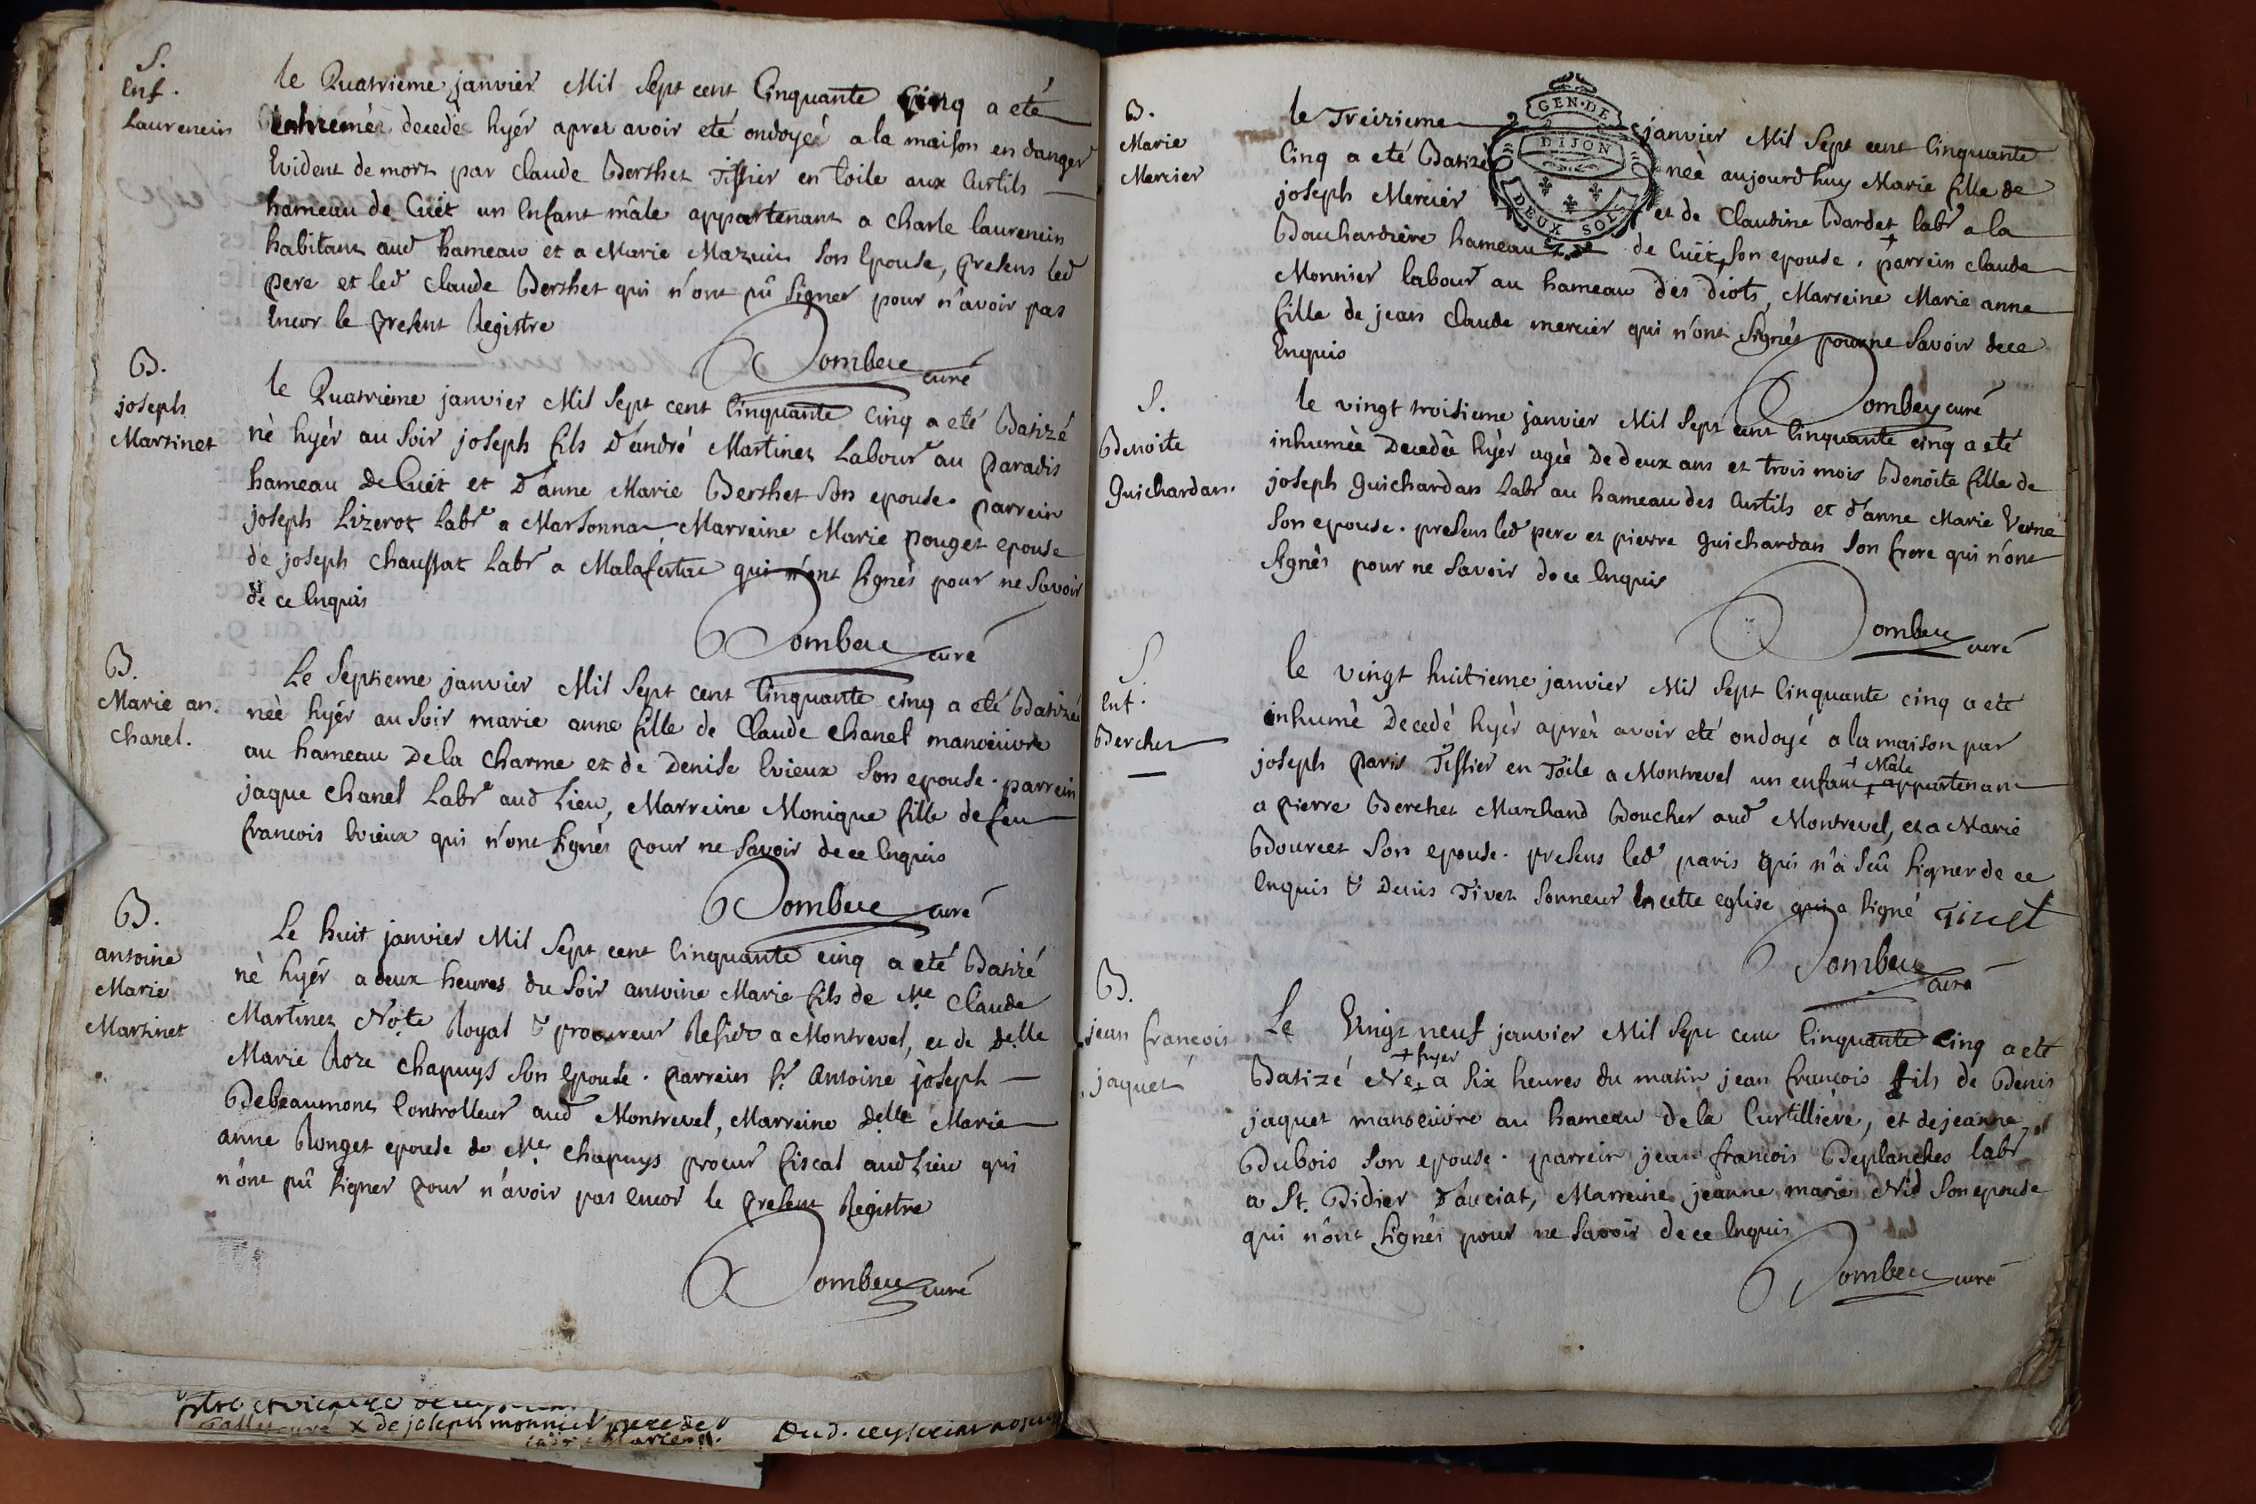 S.
Enf.
Laurencin
le Quatrieme janvier Mil Sept cent Cinquante Cinq a eté
inhumé decedé hyér aprez avoir eté ondoyé a la maison en danger
Evident de mort par Claude Berthet Tissier en toile aux Curtils
hameau de Cuët un Enfant mâle appartenant a Charle laurencin
habitant aud hameau et a Marie Mazuir Son Epouse, presens led
pere et led Claude Berthet qui n'ont pû Signer pour n'avoir pas
Encor le present Registre
Dombey curé
B.
joseph
Martinet
le Quatrième janvier Mil Sept cent Cinquante Cinq a eté Batizé
né hyér au Soir joseph fils D'andré Martinet Labour au paradis
hameau de Cuët et D'anne Marie Berthet Son epouse. parrein
joseph Lizerot Labr a Marsonna, Marreine Marie pouget epouse
de joseph Chaussat Labr a Malafertac qui n'ont Signés pour ne Savoir
de ce Enquis
Dombey curé
B.
Marie an.
Chanel.
Le Septieme janvier Mil Sept cent Cinquante cinq a eté Batizée
néé hyér au Soir marie anne fille de Claude Chanel manoeuvre
au hameau De la Charme et de Denise Evieux Son epouse. parrein
jaque Chanel Labr aud Lieu, Marreine Monique fille de feu
francois Evieux qui n'ont Signés pour ne Savoir de ce Enquis
Dombey curé
B.
antoine
Marie
Martinet
Le huit janvier Mil Sept cent Cinquante cinq a eté Batizé
né hyér a deux heures du Soir antoine Marie fils de Me Claude
Martinet Note Royal & procureur Residt a Montrevel, et de Delle
Marie Roze Chapuys Son Epouse. parrein Sr Antoine joseph
Debeaumont Controlleur aud Montrevel, Marreine Delle Marie
anne Ronget epouse de Me Chapuys procur fiscal aud Lieu qui
n'ont pû Signer pour n'avoir pas Encor le present Registre
Dombey curé
curé x de joseph monnier pere de
B.
Marie
Mercier
GEN. DE
DIJON
DEUX SOLS
le Treizieme janvier Mil Sept cent Cinquante
Cinq a eté Batizé néé aujourdhuy Marie fille de
joseph Mercier et de Claudine Bardet labr a la
Bouchardière hameau de Cuët, Son epouse. parrein claude
Monnier labour au hameau des diots, Marreine Marie anne
fille de jean Claude mercier qui n'ont Signés pour ne Savoir de ce
Enquis
Dombey curé
S.
Benoite
Guichardan.
le vingt troisieme janvier Mil Sept cent Cinquante cinq a eté
inhumée Decedée hyér agée De deux ans et trois mois Benoite fille de
joseph Guichardan Labr au hameau des Curtils et d'anne Marie Verne
Son epouse. presens led pere et pierre guichardan Son frere qui n'ont
Signés pour ne Savoir de ce Enquis
Dombey curé
S.
Enf.
Berchet
le vingt huitieme janvier Mil Sept Cinquante cinq a eté
inhumé Decedé hyér aprez avoir eté ondoyé a la maison par
joseph Paris Tissier en Toile a Montrevel un enfant + Mâle appartenant
a pierre Berchet Marchand Boucher aud Montrevel, et a Marie
Bourcet Son epouse. presens led paris qui n'a Seû Signer de ce
Enquis & Denis Tivet Sonneur En cette eglise qui a Signé Tivet
Dombey curé
B.
jean francois
jaquet
Le Vingt neuf janvier Mil Sept cent Cinquante Cinq a eté
Batizé Né + hyer a Six heures du matin jean francois fils de Denis
jaquet manoeuvre au hameau de la Curtillière, et de jeanne
Dubois Son epouse. parrein jean francois Deplanches labr
a St. Didier D'auciat, Marreine jeanne marie Nid Son epouse
qui n'ont Signés pour ne Savoir de ce Enquis
Dombey curé